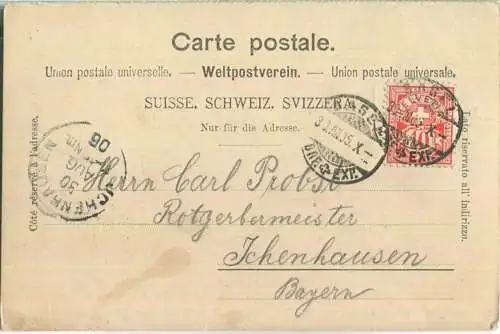 Carte postale.
Union postale universelle. — Weltpostverein. — Union postale universale.
SUISSE. SCHWEIZ. SVIZZERA.
Nur für die Adresse.
Côté réservé à l'adresse.
Lato riservato all' indirizzo.
BRF. EXP.
ICHENHAUSEN
30
AUG
06
Herrn Carl Probst
Rotgerbermeister
Ichenhausen
Bayern